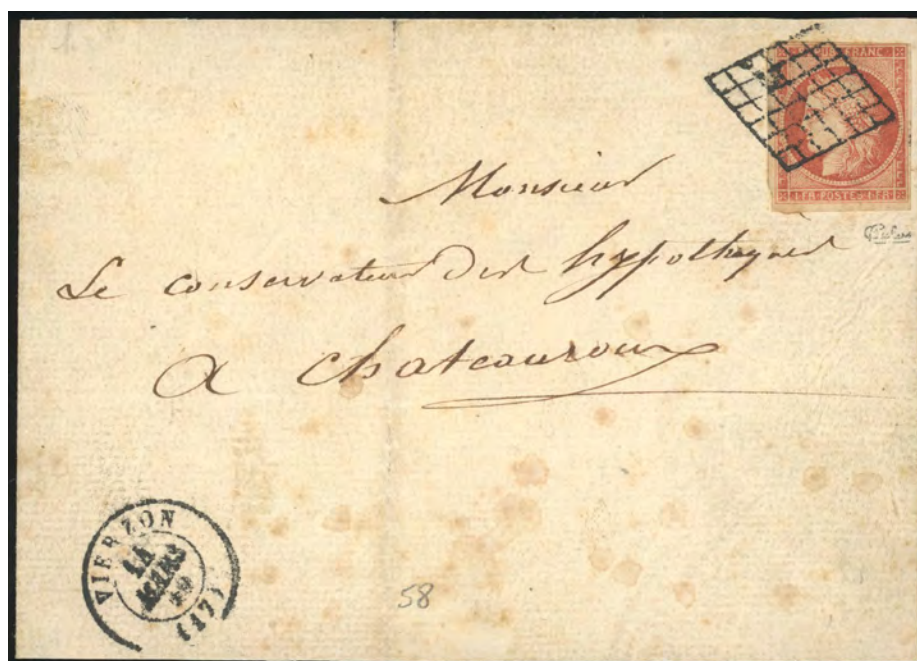 REPUB. FRANC.
1·FR·POSTE·1·FR
Monsieur
Le conservateur des hypotheques
a Chateauroux
VIERZON
MARS
49
(17)
58